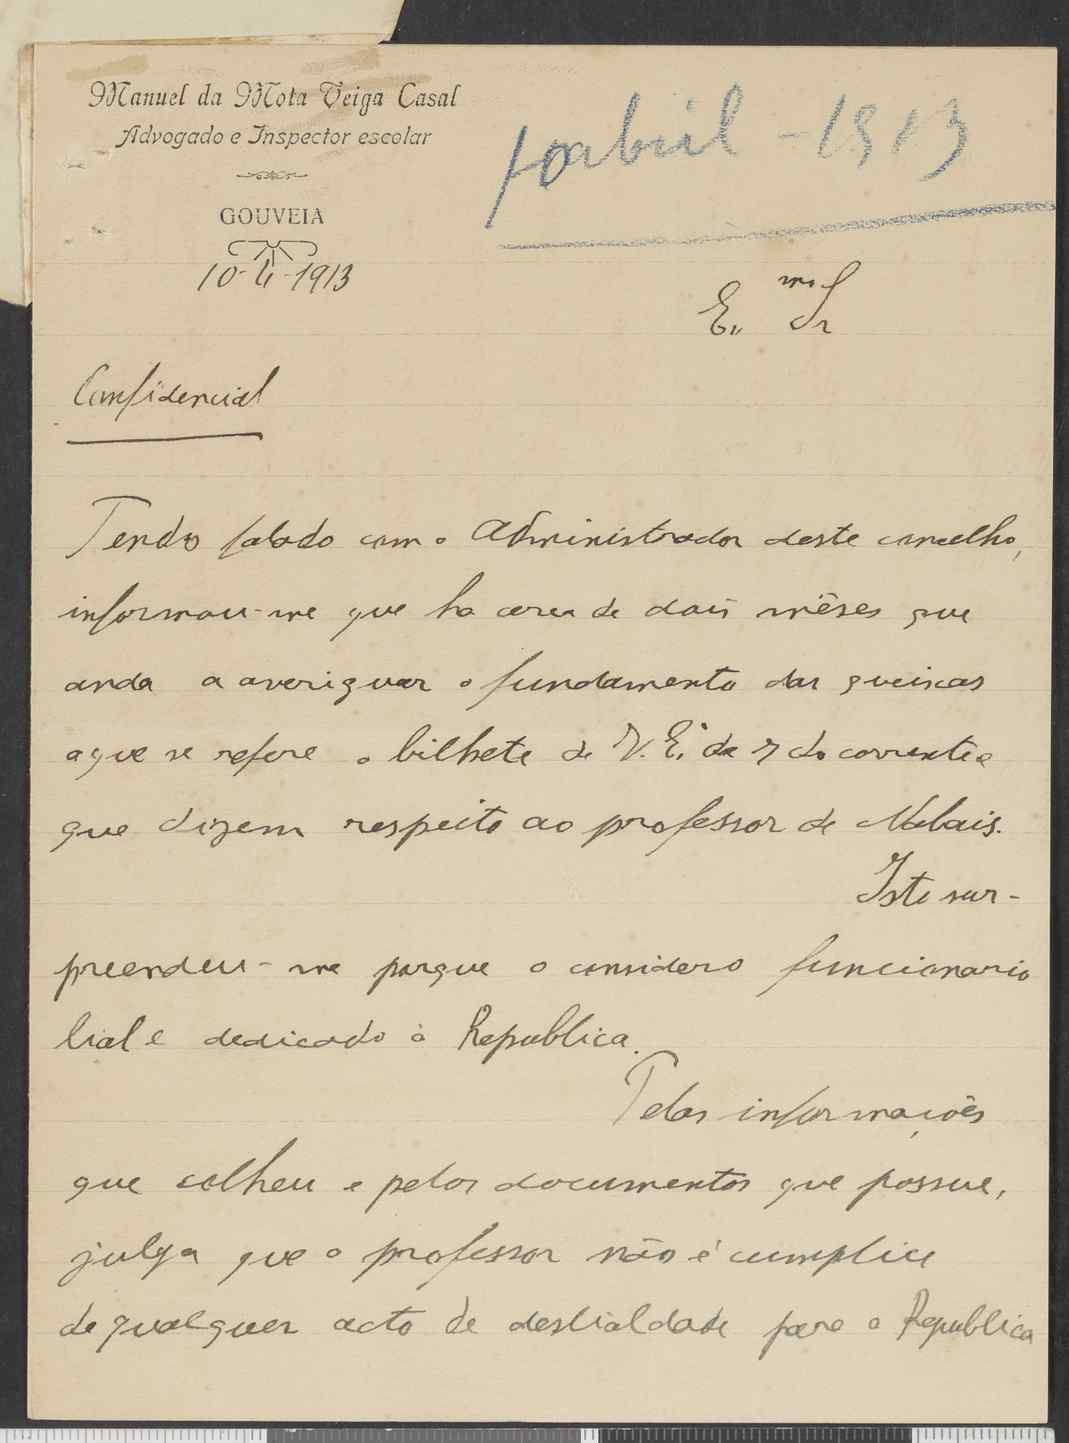 Manuel da Mota Veiga Casal
Advogado e Inspector escolar
GOUVEIA
abril - 1913
10-4-1913
E. mo Sr
Confidencial
Tendo falado com o Administrador deste concelho,
informou-me que ha cerca de dois mêses que
anda a averiguar o fundamento das queixas
a que se refere o bilhete de V. E.ª de 7 do corrente e
que dizem respeito ao professor de Nabais.
Isto sur-
preendeu-me porque o considero funcionario
lial e dedicado à Republica.
Pelas informações
que colheu e pelos documentos que possue,
julga que o professor não é cumplice
de qualquer acto de deslialdade para a Republica